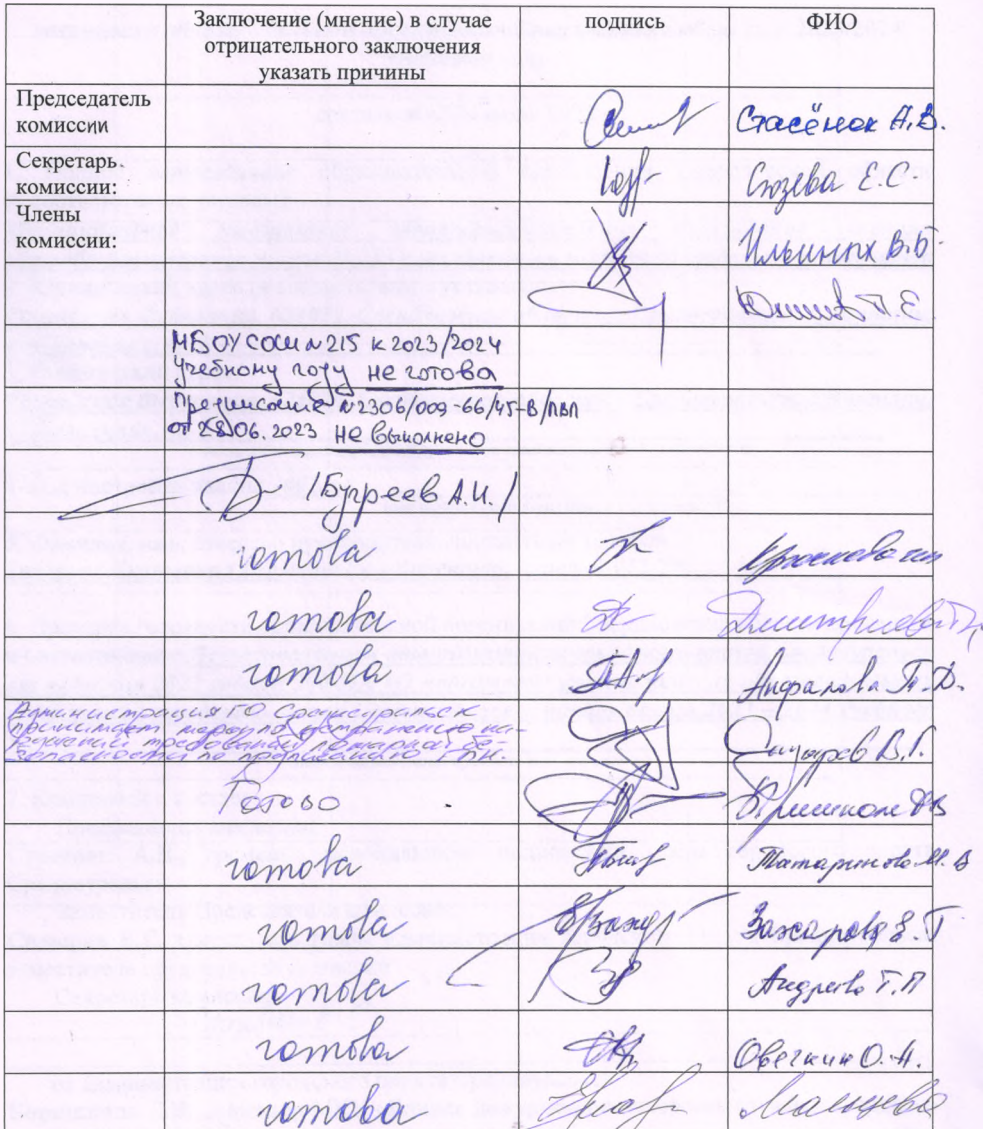 Заключение (мнение) в случае отрицательного заключения указать причины
подпись
ФИО
Председатель комиссии
Стасёнок А.В.
Секретарь комиссии:
Сюзева Е.С.
Члены комиссии:
Ильиных В.О.
МБОУ СОШ №215 к 2023/2024
учебному году не готова
Предписание №2306/009-66/45-В/ПВП
от 28.06.2023 не выполнено
/Бугреев А.И./
готова
готова
готова Анфалова Т.Ф.
Администрация ГО Среднеуральск
принимает меры по устранению на-
рушений требований пожарной без-
опасности по предписанию
В.Г.
Готово
готова Татаринова М.В
готова Захарова Е Г
готова Андреева Т.П
готова Овечкин О.А.
готова Мальцева